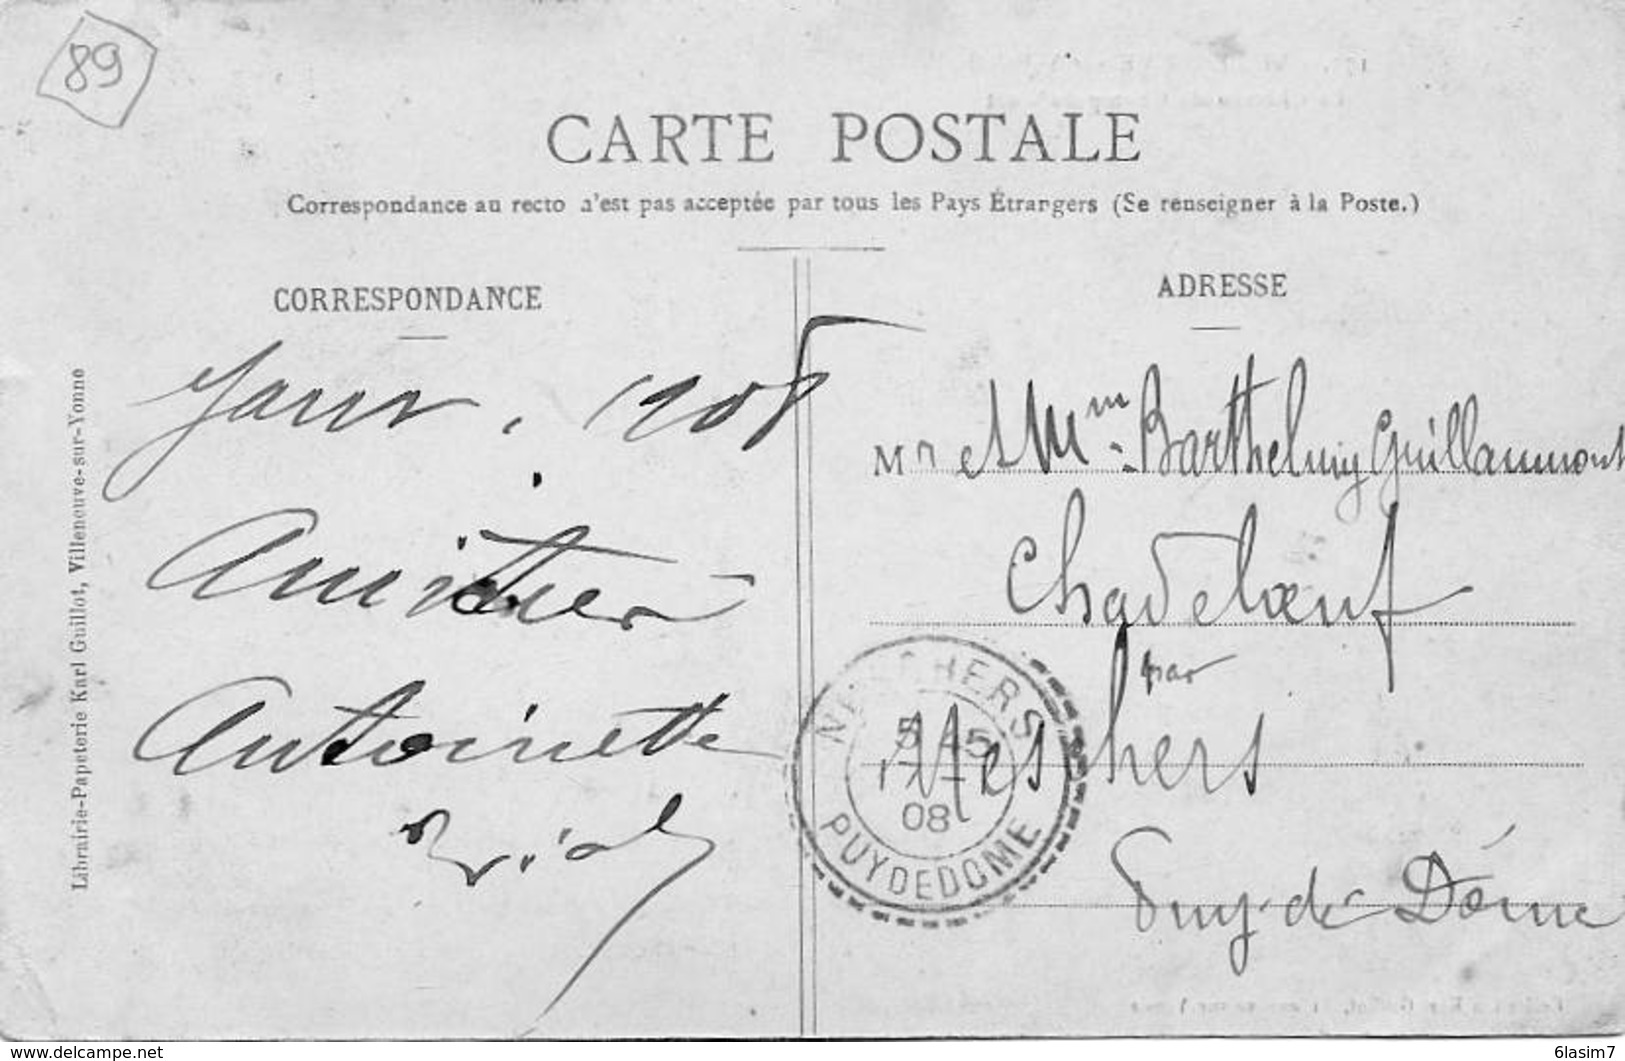 89
CARTE POSTALE
Correspondance au recto n'est pas acceptée par tous les Pays Étrangers (Se renseigner à la Poste.)
CORRESPONDANCE
Janv. 1908
Amitiés
Antoinette
Librairie-Papeterie Karl Guillot, Villeneuve-sur-Yonne
ADRESSE
Mr et Mme Barthelmy Guillaumont
Chadeleuf
par
Neschers
Puy-de-Dôme
NESCHERS
08
PUY DE DOME
www.delcampe.net
6lasim7